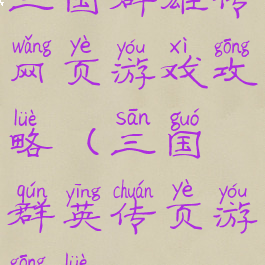 三国群雄传
wǎng yè yóu xì gōng
网页游戏攻
lüè sān guó
略（三国
qún yīng chuán yè yóu
群英传页游
gōng lüè